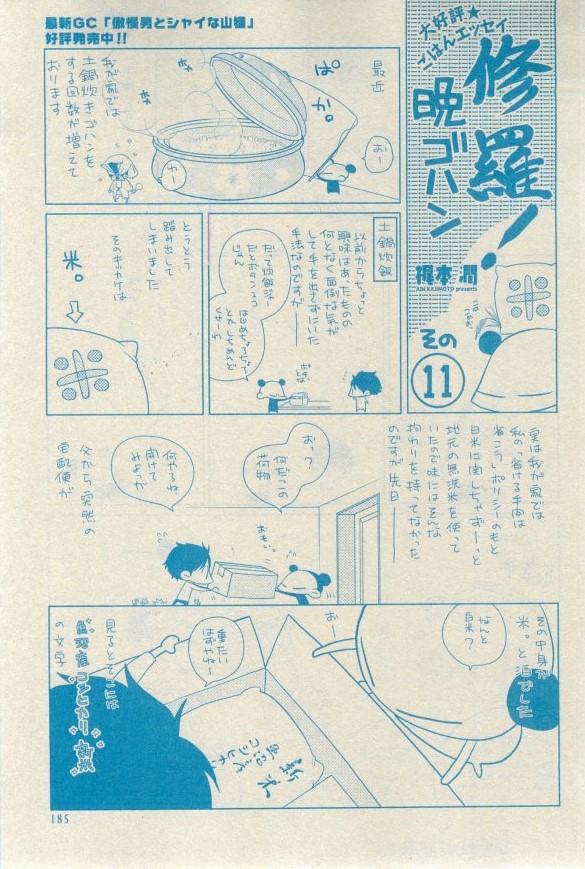 最新GC「傲慢男とシャイな山猫」
好評発売中!!
大好評★
ごはんエッセイ
修羅!
晩ゴハン
梶本潤
JUN KAJIMOTO presents
その
11
最近
ぱか。
おー
ホカ
ホカ
我が家では
土鍋炊きゴハンを
する回数が増えて
おります
土鍋炊飯
以前からちょっと
興味はあったものの
何となく面倒な気が
して手を出さずにいた
手法なのですが——
だって炊飯ジャー
だとボタン1コ
じゃん
はじめちょろちょろ
とうとう
踏み出して
しまいました
そのキッカケは
米。
実は我が家では
私の「省ける手間は
省こう」ポリシーのもと
白米に関しちゃずーっと
地元の無洗米を使って
いたので味にはそんな
拘わりを持ってなかった
のですが先日——
おっ?
何だっこの
荷物
おもい。
何やろね
開けて
みよっか
父から突然の
宅配便が
その中身が
米。と酒でした
なんと
白米?
おー
重たい
はずやねー
見るとそこには
魚沼産コシヒカリ新米
の文字
新米
魚沼産
コシヒカリ
185